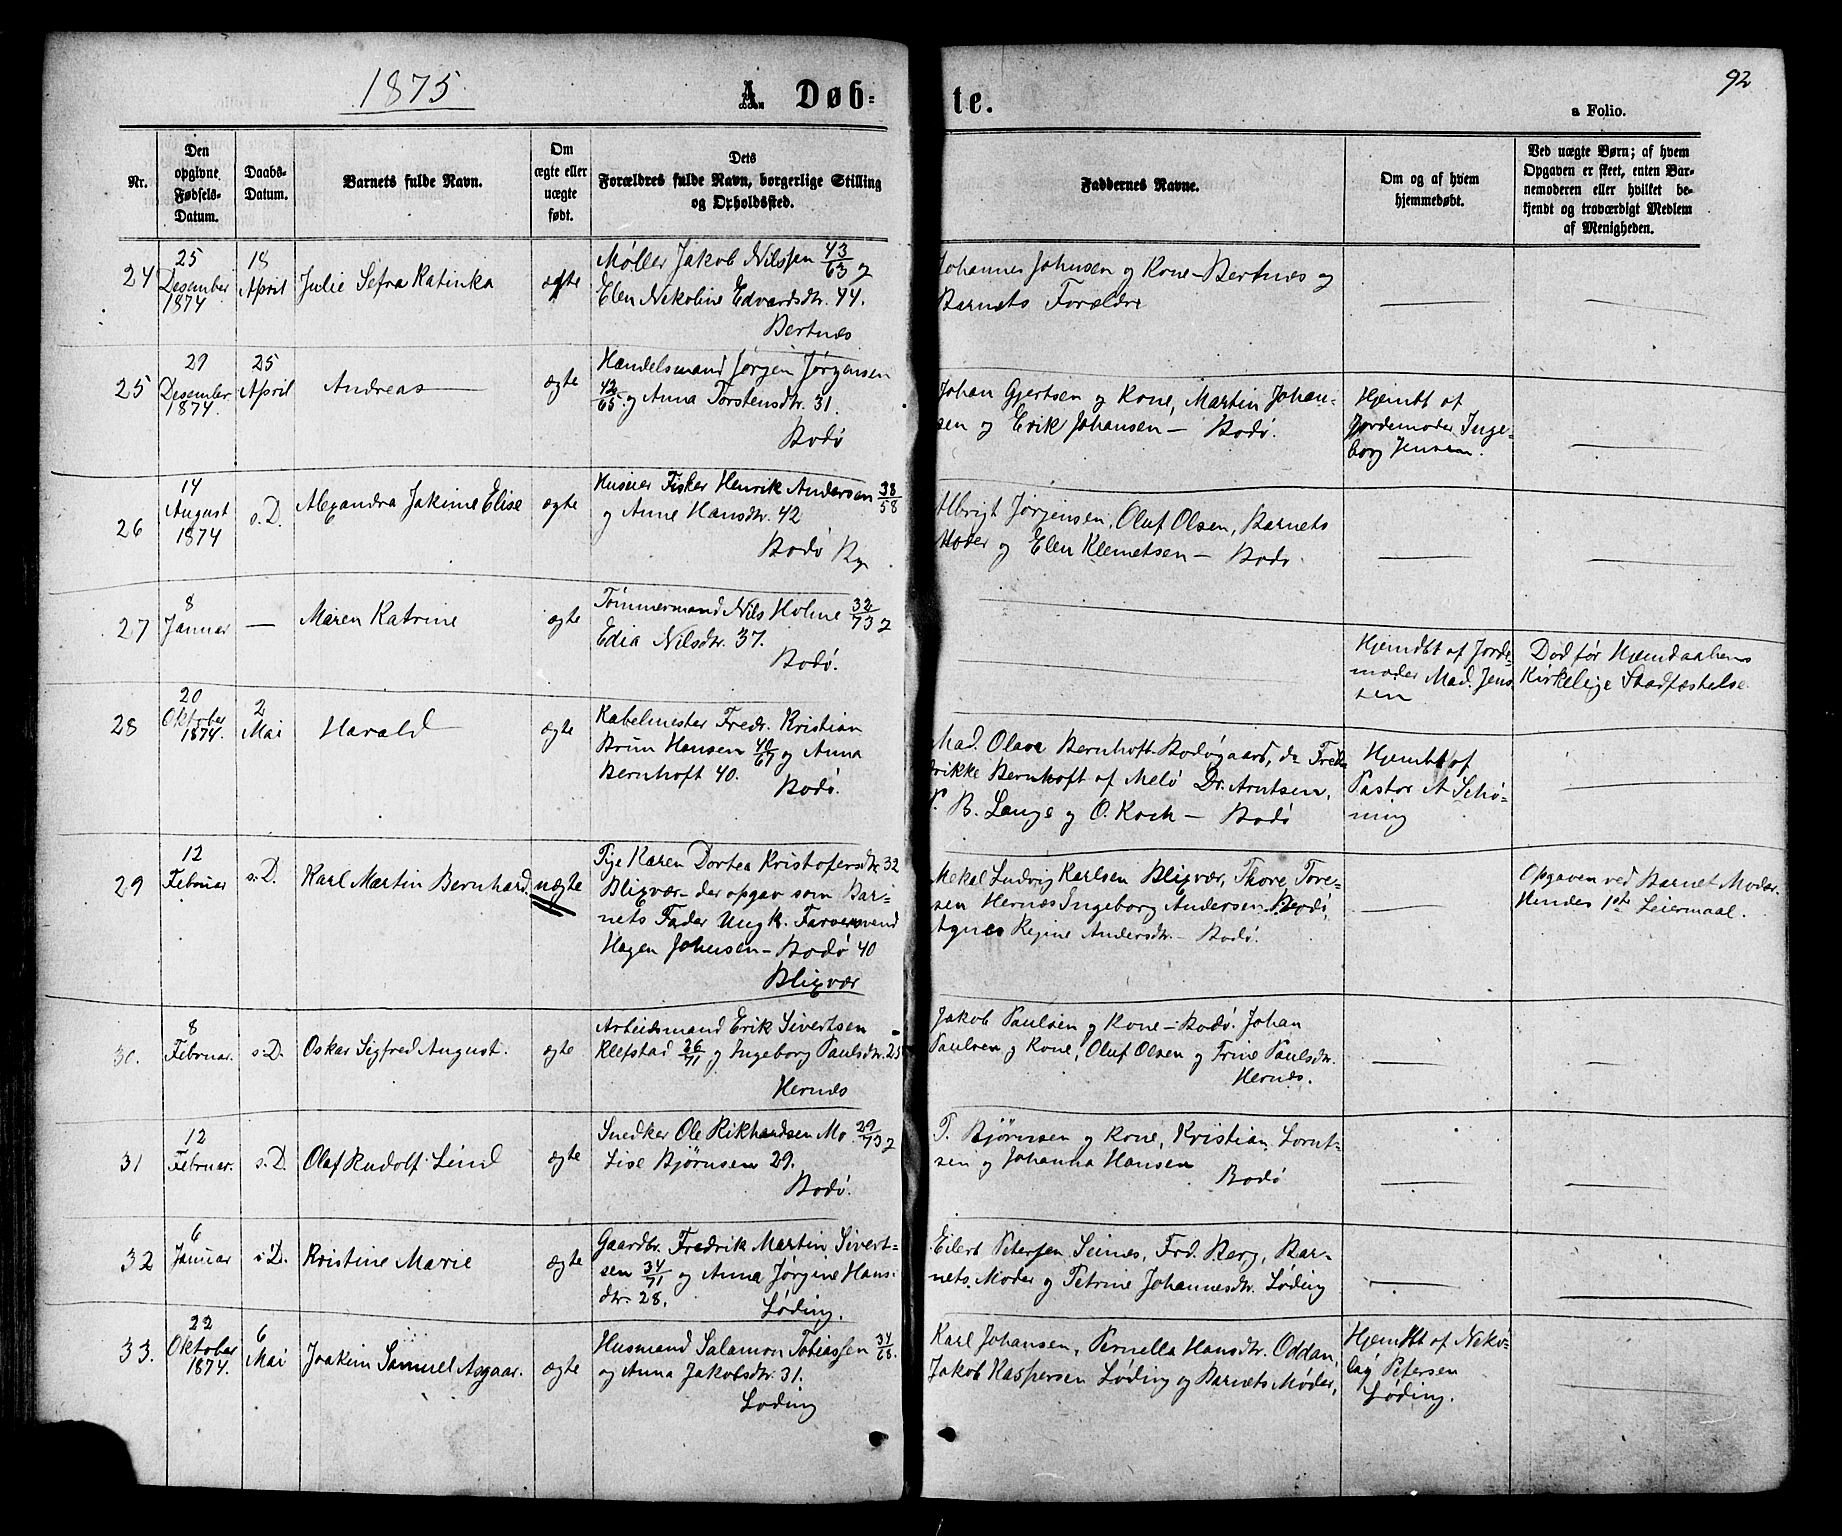 1875.
A. Døb-
te.
92
a Folio.
Nr.
Den
opgivne
Fødsels-
Datum.
Daabs-
Datum.
Barnets fulde Navn.
Om
ægte eller
uægte
født.
Dets
Forældres fulde Navn, borgerlige Stilling
og Opholdssted.
Faddernes Navne.
Om og af hvem
hjemmedøbt.
Ved uægte Børn; af hvem
Opgaven er skeet, enten Bar-
nemoderen eller hvilket be-
kjendt og troværdigt Medlem
af Menigheden.
24
25
Desember
1874
18
April
Julie Sefra Katinka
ægte
Møller Jakob Nilssen 43/63 og
Elen Nekoline Edvardsdtr. 44.
Bertnes
Johannes Johnsen og Kone - Bertnes og
Barnets Forældre
25
29
Desember
1874.
25
April
Andreas
ægte
Handelsmand Jørgen Jørgensen
42/65. og Anna Torstensdtr. 31.
Bodø
Johan Gjertsen og Kone, Martin Johan-
sen og Erik Johansen - Bodø.
Hjemdt af
Jordemoder Inge-
borg Jensen.
26
14
August
1874
s. D.
Alexandra Jakime Elise
ægte
Huseier Fisker Henrik Andersen 38/58
og Anne Hansdtr. 42
Bodø By
Albrigt Jørgensen, Oluf Olsen, Barnets
Moder og Elen Klemetsen - Bodø.
27
8
Januar
—
Maren Katrine
ægte
Tømmermand Nils Holme 32/73 og
Edia Nilsdtr. 37.
Bodø.
Hjemdbt af Jorde-
moder Mad. Jens-
sen
Død før Hjemdaabens
Kirkelige Stadfæstelse
28
20
Oktober
1874.
2
Mai
Harald
ægte
Kabelmester Fredr. Kristian
Brun Hansen 40/67 og Anna
Bernhoft 40.
Bodø.
Mad. Olava Bernhoft. Bodøgaard, do Fred-
rikke Bernhoft af Melø Dr. Arntsen,
P. B. Lange og O. Koch - Bodø
Hjemdbt af
Pastor A Schø-
ning
29
12
Februar
s. D.
Karl Martin Bernhard.
uægte
Pige Karen Dortea Kristofersdtr. 32
Blixvær - der opgav som Bar-
nets Fader Ungk. Farvermand
Hagen Johnsen - Bodø 40
Blixvær
Mekal Ludvig Karlsen Blixvær, Thore Tore-
sen Hernes Ingeborg Andersen Bodø,
Agnes Regine Andersdtr. - Bodø.
Opgaven ved Barnet Moder.
Hendes 1ste Leiermaal.
30.
8
Februar.
s. D.
Oskar Sigfred August.
ægte
Arbeidsmand Erik Sivertsen
Klefstad 26/71 og Ingeborg Paulsdtr. 25
Hernes
Jakob Paulsen og Kone - Bodø. Johan
Paulsen og Kone, Oluf Olsen og Trine Paulsdtr.
Hernes.
31
12
Februar.
s. D.
Olaf Rudolf Lind
ægte
Snedker Ole Rikhardsen Mo. 29/73 og
Lise Bjørnsen 29.
Bodø.
T. Bjørnsen og Kone, Kristian Lornt-
sen og Johanna Hansen
Bodø
32
6
Januar
s. D.
Kristine Marie
ægte
Gaardbr. Fredrik Martin Sivert-
sen 34/71 og Anna Jørgine Hans-
dtr. 28.
Løding.
Eilert Petersen Seines, Frd. Berg, Bar-
nets Moder og Petrine Johannesdtr. Løding
33.
22
Oktober
1874.
6
Mai
Joakim Samuel Asgaar.
ægte
Husmand Salamon Tobiassen 34/68.
og Anna Jakobsdtr. 31.
Løding
Karl Johansen, Pernella Hansdtr. Oddan,
Jakob Kaspersen Løding og Barnets Moder,
Hjemdbt af Neko-
lai Petersen
Løding.